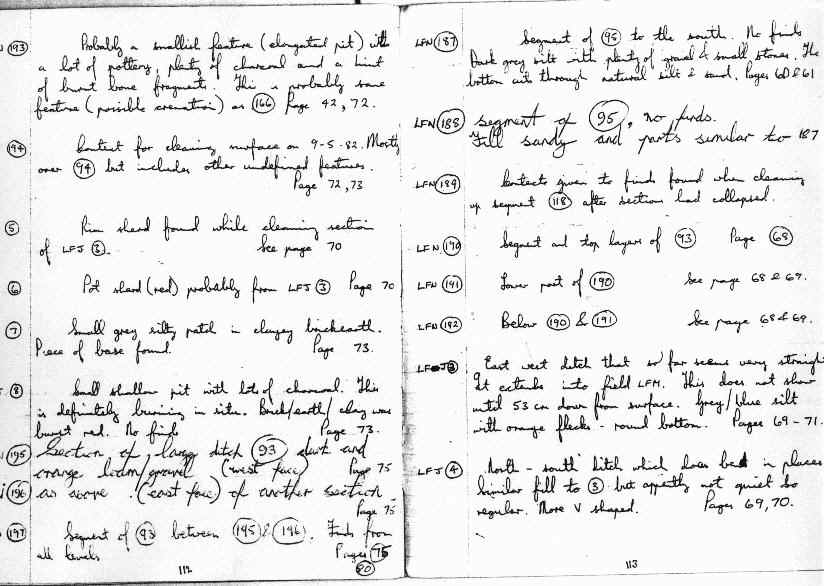 193 Probably a smallish feature (elongated pit) with
a lot of pottery, plenty of charcoal and a hint
of burnt bone fragments. This is probably same
feature (possible cremation) as 166 Page 42, 72.
194 Context for cleaning surface on 9-5-82. Mostly
over 94 but includes other undefined features.
Page 72, 73
5 Rim sherd found while cleaning section
of LFJ 3. See page 70
6 Pot sherd (red) probably from LFJ 3 Page 70
7 Small grey silty patch in clayey brickearth.
Piece of base found. Page 73.
8 Small shallow pit with lots of charcoal. This
is definitely burning in situ. Brick/earth/clay was
burnt red. No finds Page 73.
195 Section of large ditch 93 dark and
orange loam/gravel (west face) Page 75
196 as above. (east face) of another section.
Page 75
197 Segment of 93 between 195 & 196. Finds from
all levels Pages 75
90
112
LFN 187 Segment of 95 to the south. No finds
Dark grey silt with plenty of gravel & small stones. The
bottom cuts through natural silt & sand. Pages 60 & 61
LFN 188 segment of 95, no finds.
Fill sandy and parts similar to 187
LFN 189 Contexts given to finds found when cleaning
up segment 118 after section had collapsed.
LFN 190 Segment and top layers of 93 Page 68
LFN 191 Lower part of 190 See page 68 & 69.
LFN 192 Below 190 & 191 See page 68 & 69.
LFJ 3 East west ditch that so far seems very straight
It extends into field LFM. This does not show
until 53 cm down from surface. Grey/blue silt
with orange flecks - round bottom. Pages 69-71.
LFJ 4 North-south ditch which does in places
Similar fill to 3 but not quite so
regular. More V shaped. Pages 69, 70.
113